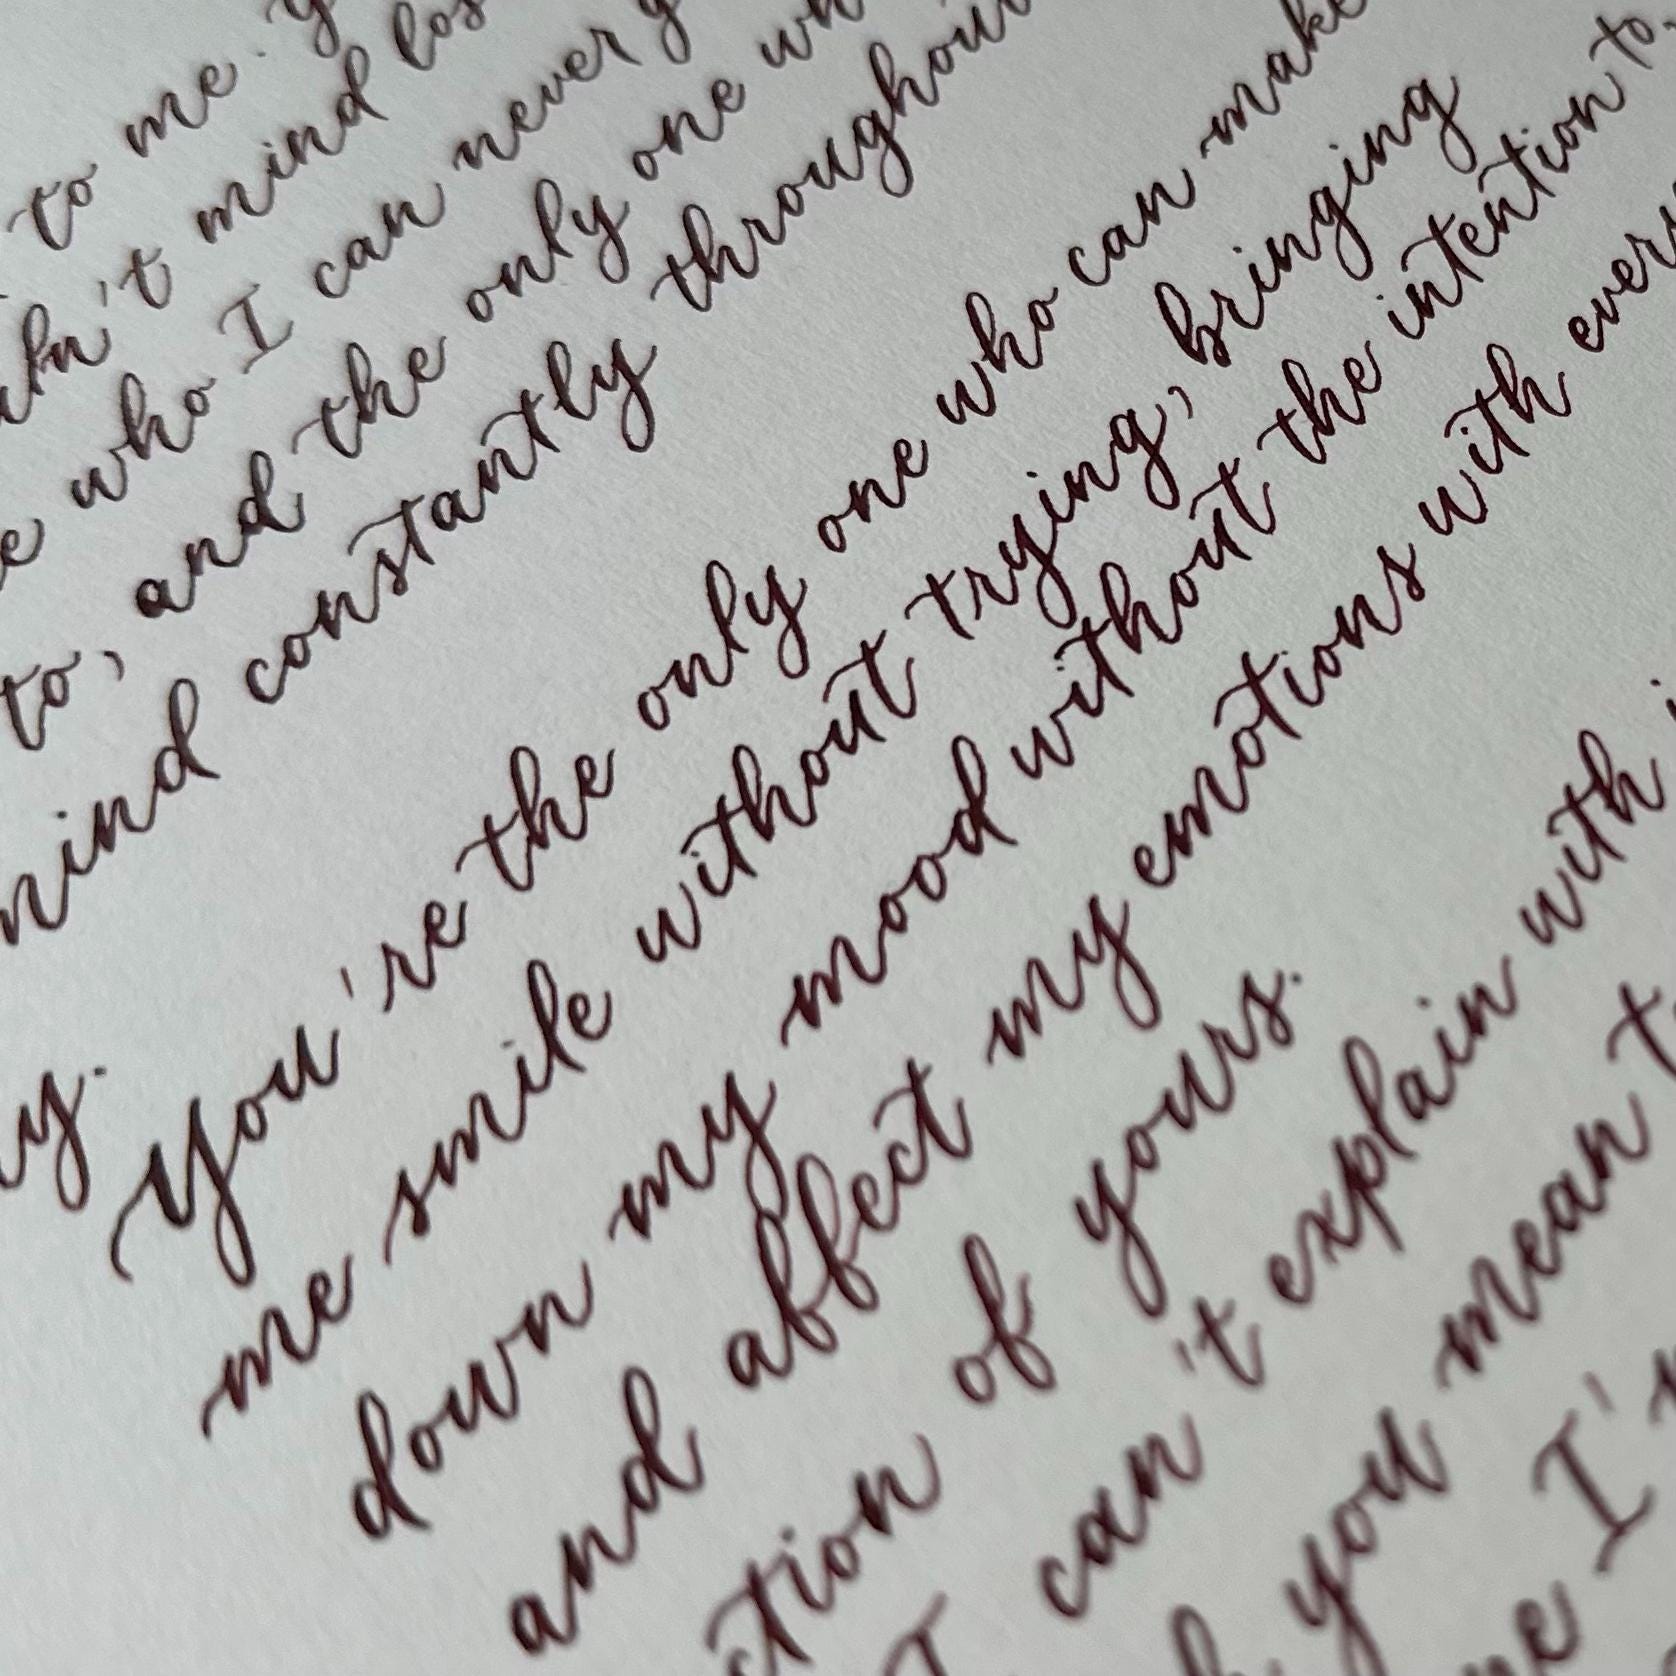 to me.
mind
who I can never
to, and the only one
mind constantly throughout
y.
You're the only one who can make
me smile without trying, bringing
down my mood without the intention to,
and affect my emotions with every
of yours.
I can't explain with
you mean
I'